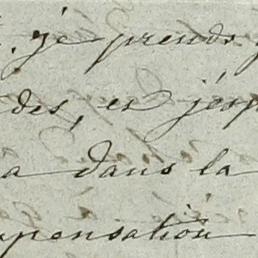 . je prends
des, et j'esp
a dans la
mpensation